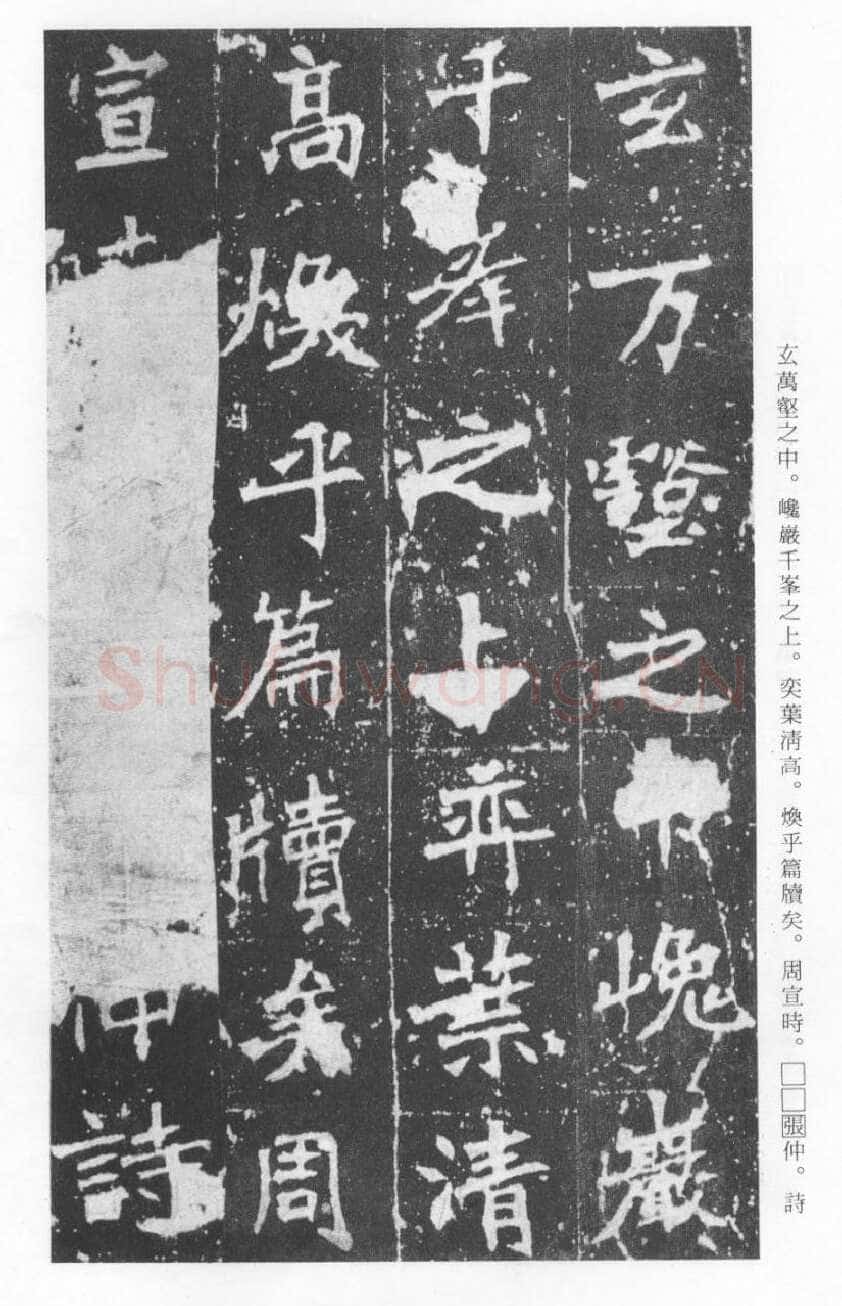 玄万壑之中巉巖
千峯之上弈葉清
高煥乎篇牘矣周
宣時仲詩
玄萬壑之中。巉巖千峯之上。奕葉清高。煥乎篇牘矣。周宣時。□□張仲。詩
Shufawang.CN